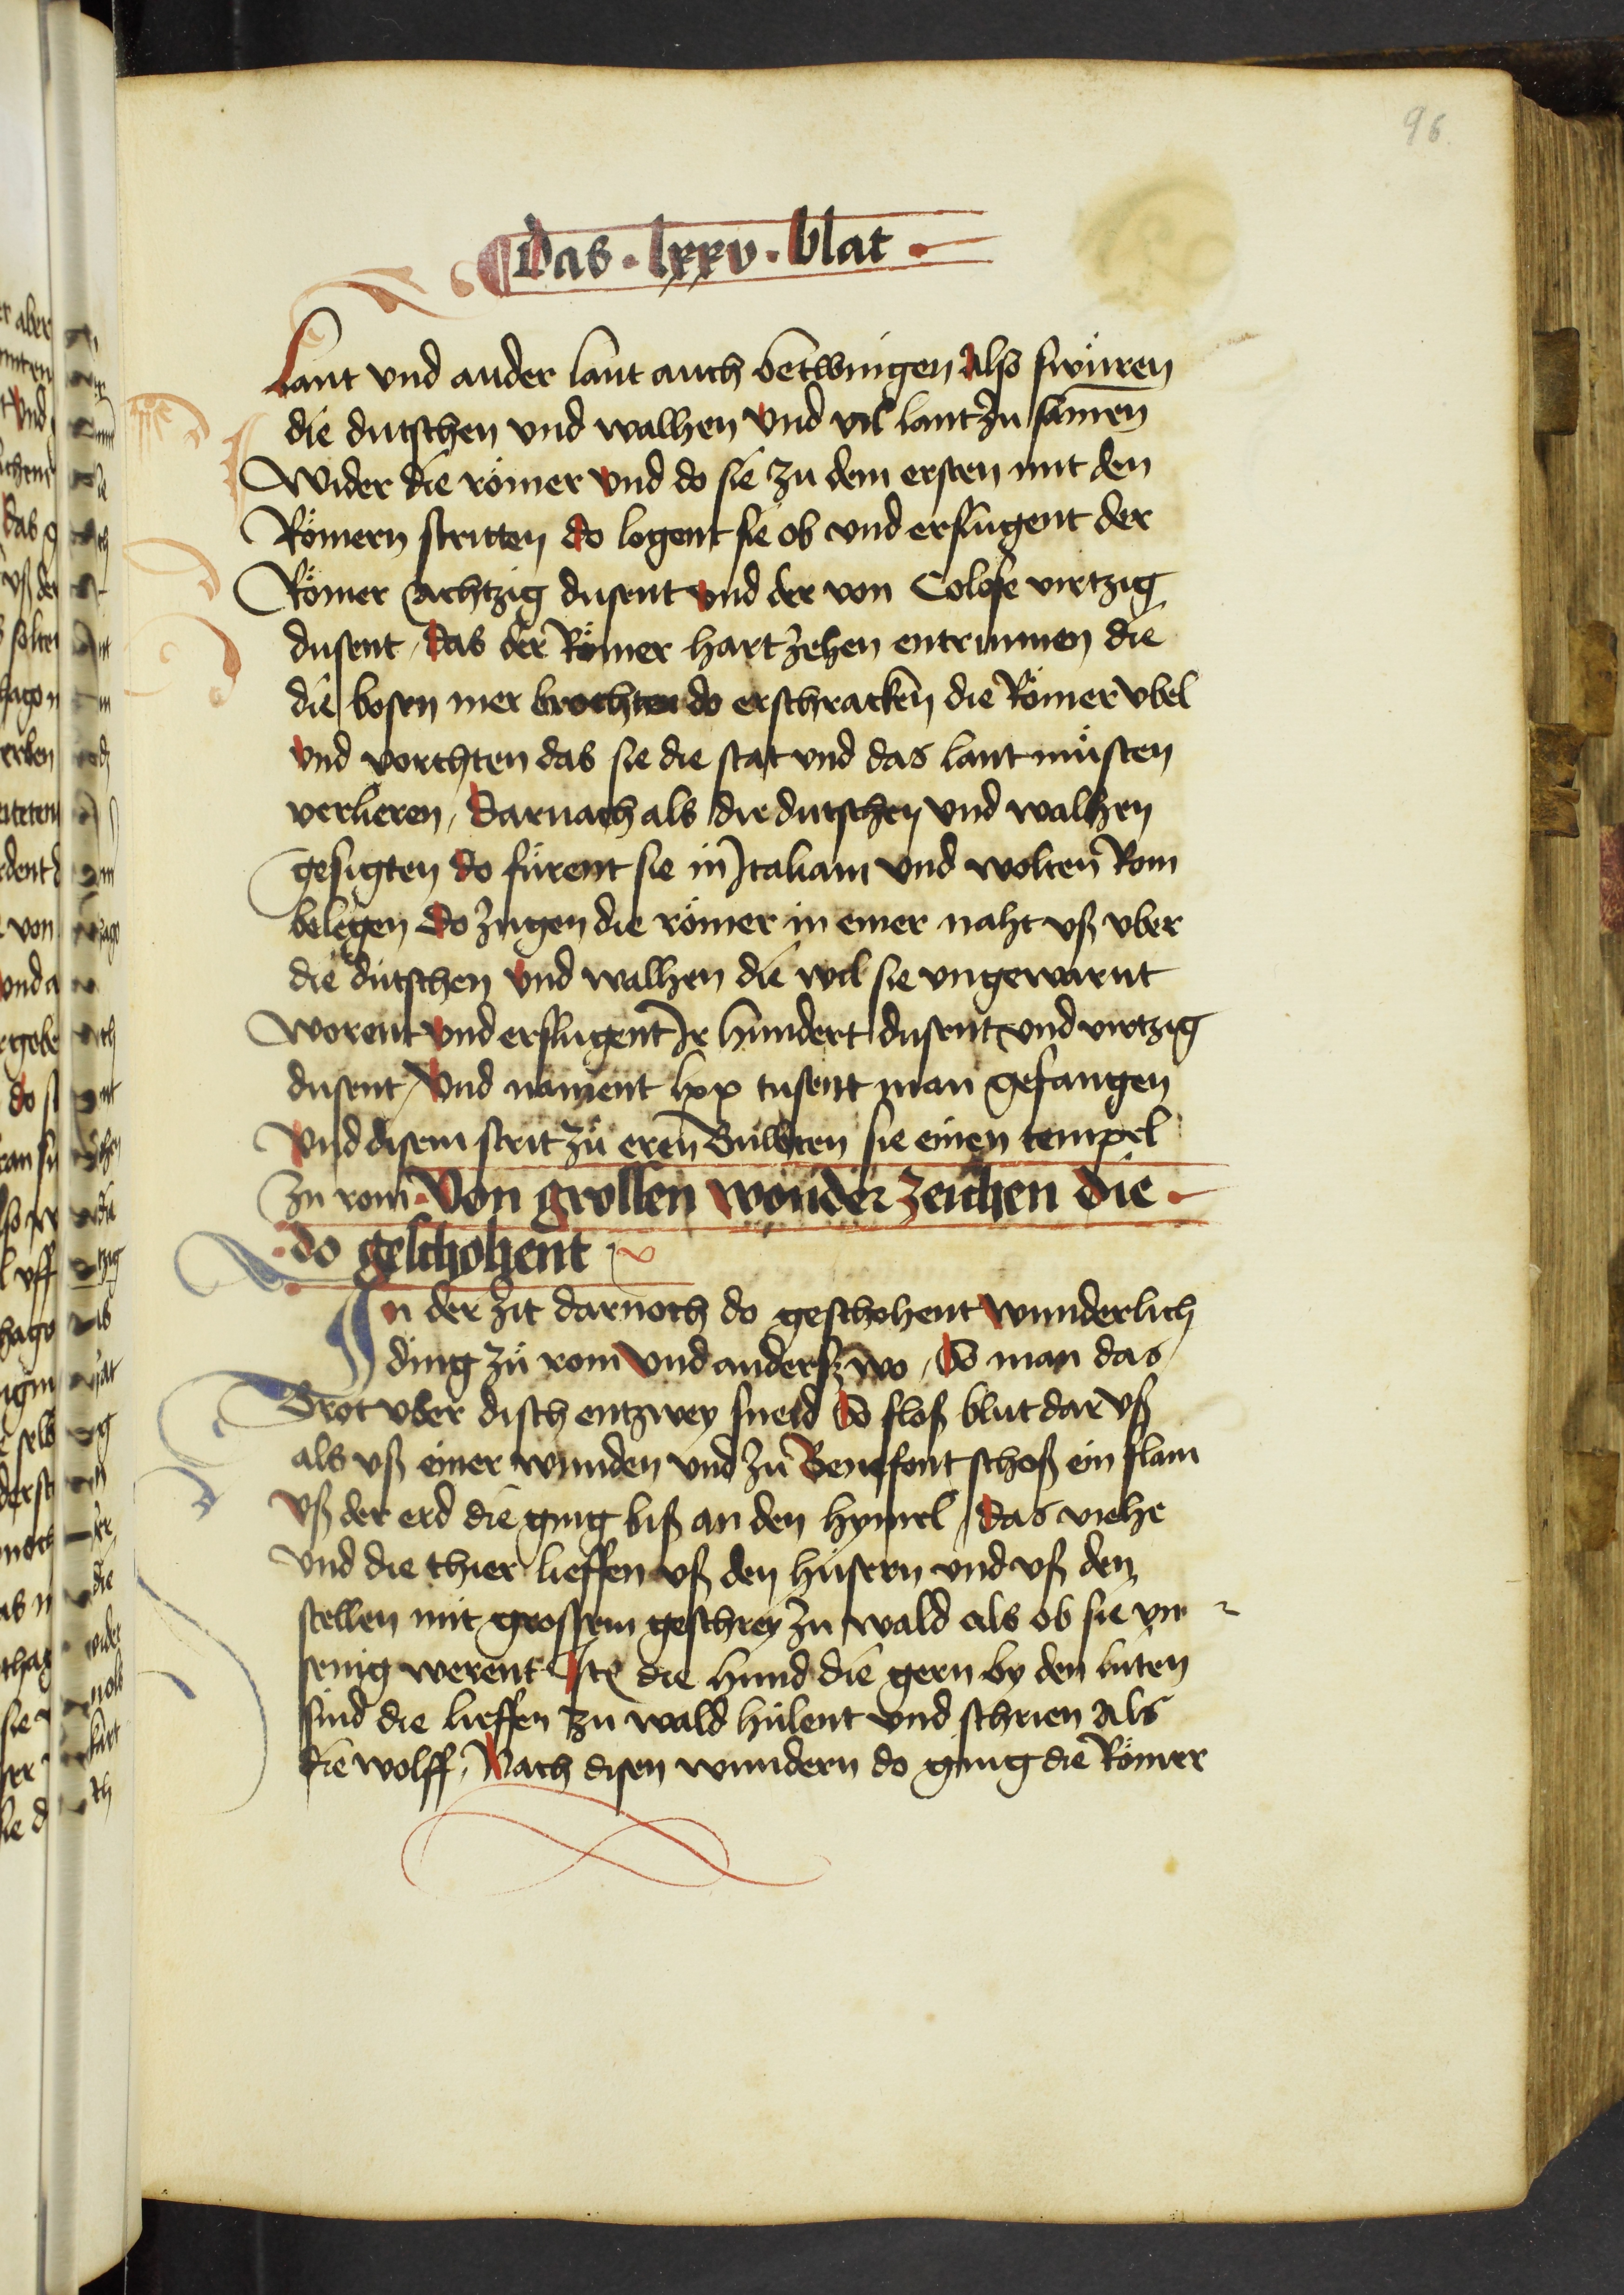 96
Das · lxxv · blat ·
Lant vnd ander lant auch betwingen Also swůren
die dutschen vnd walhen vnd vil lant zu samen
Wider die römer vnd do sie zu dem ersten mit den
Römern stritten do logent sie ob vnd erslugent der
Römer achtzig dusent vnd der von Colose virtzig
dusent / Das der Römer hart zehen entrunnen die
die bosen mer brochten do erschracken die Römer vbel
vnd vorchten das sie die stat vnd das lant můsten
verlieren / Darnach als die dutschen vnd walhen
gesigten do fůrent sie in Italiam vnd wolten Rom
belegen Do zugen die römer in einer naht vß vber
die dutschen vnd walhen die wil sie vngewarnt
Worent vnd erslugent Ir hundert dusent vnd virtzig
dusent / Vnd nament lxx tusent man gefangen
Vnd disem strit zů eren Buwten sie einen tempel
Zu rom · Von grossen wonder zeichen die ·
· do geschohent
In der zit darnoch do geschohent wunderlich
ding zů rom vnd anderszwo / So man das
Brot vber disch entzwey sneid So floß blut dar vß
als vß einer wunden vnd zů Benefont schoß ein flam
vß der erd die ging biß an den hymel / Das viehe
vnd die thier lieffen vß den hüsern vnd vß den
stellen mit grossem geschrey zu wald als ob sie vn
senig werent Itē die hund die gern by den luten
sind die lieffen zu wald hülent vnd schrien Als
die wolff / Nach disen wundern do ging die Römer